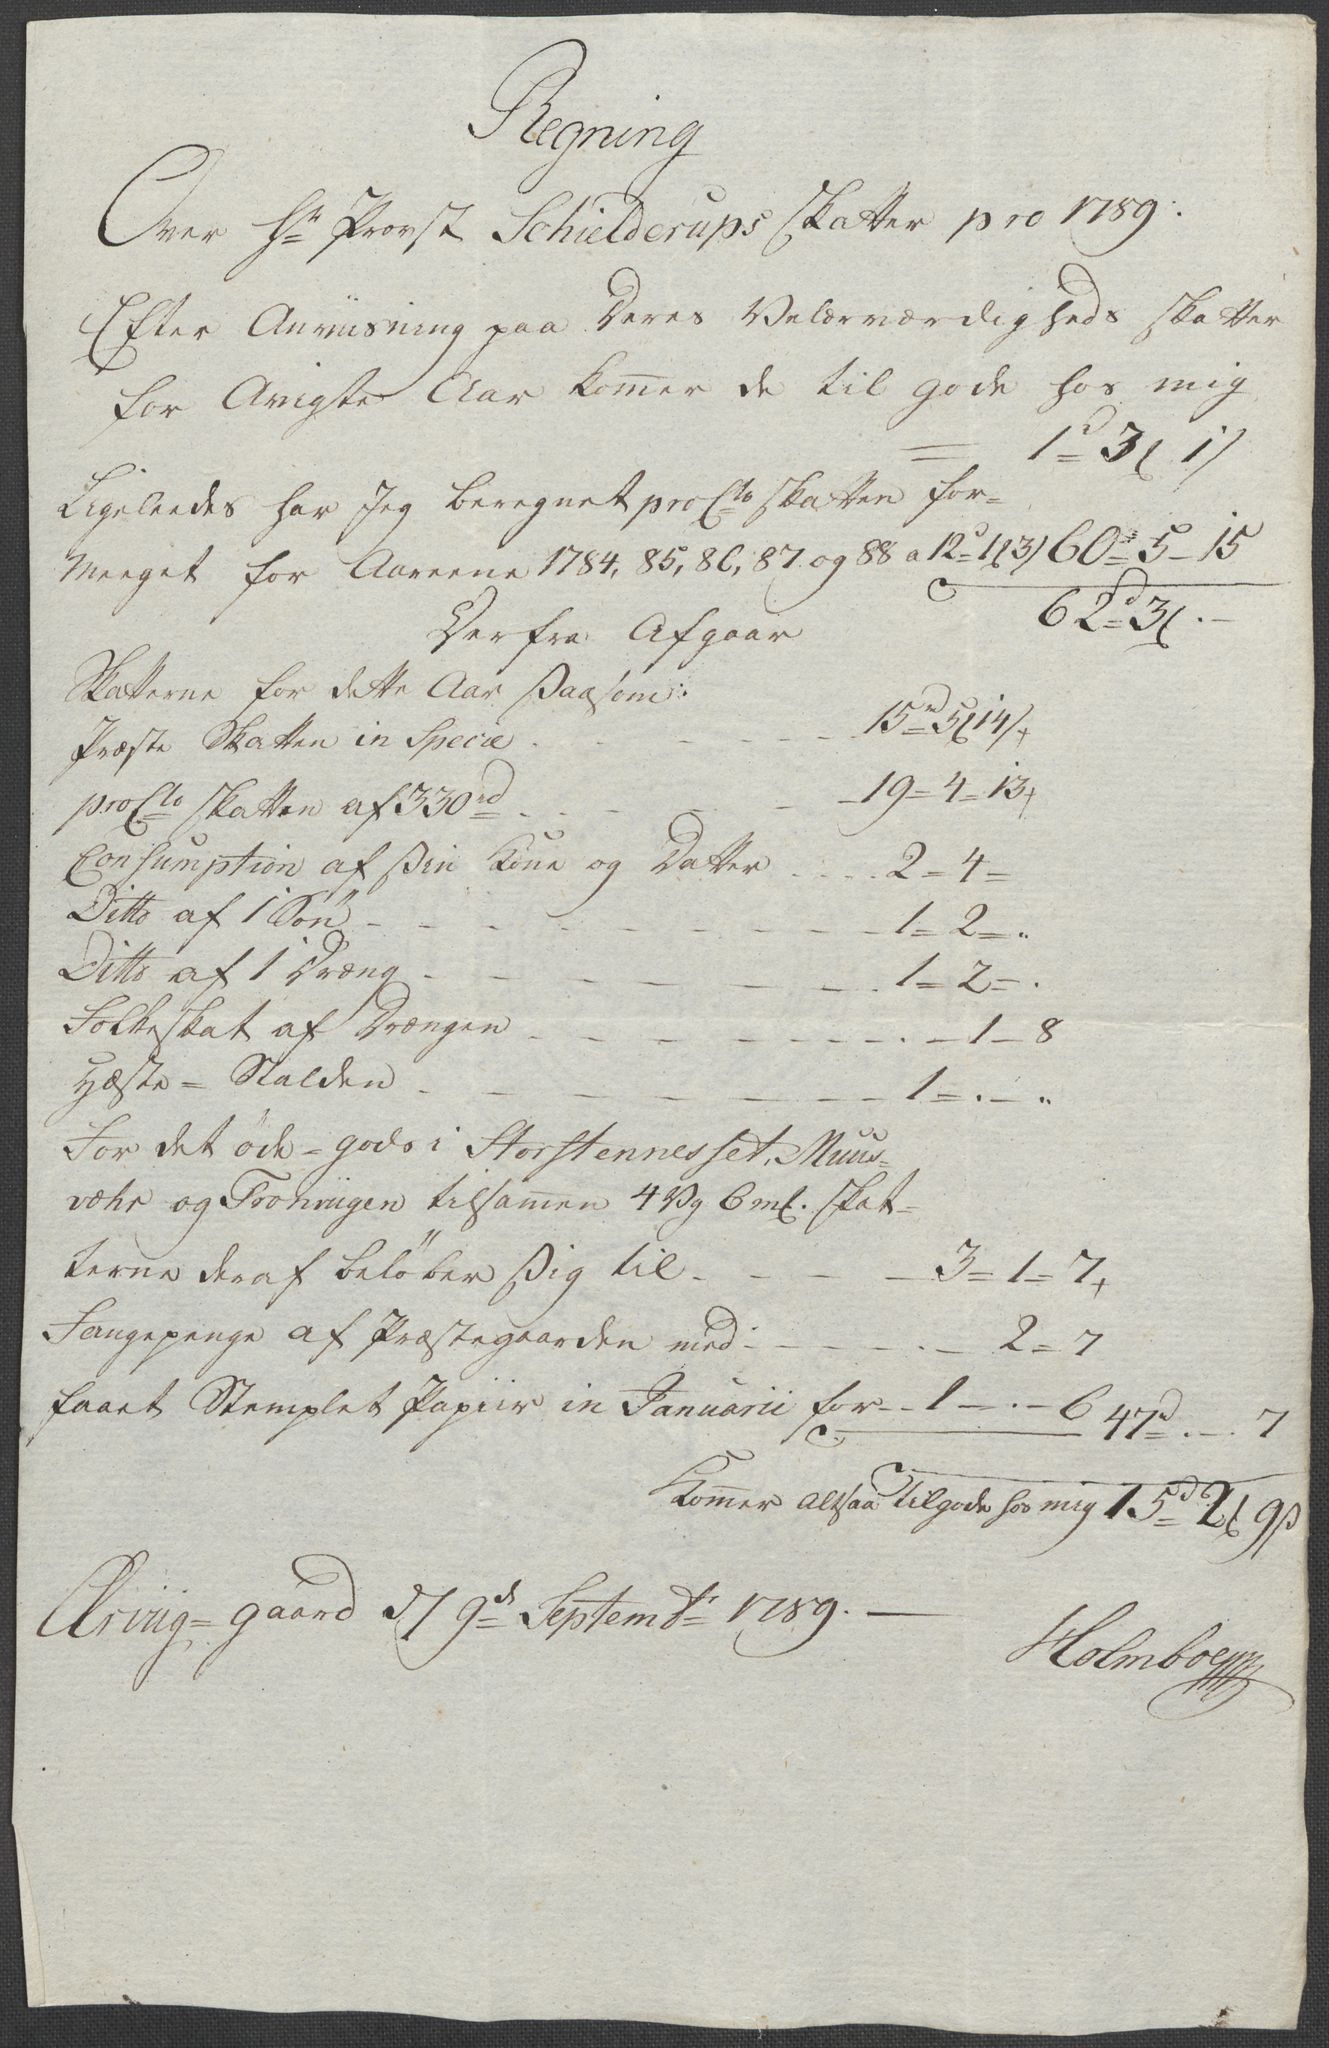 Regning
Over Hr. Provst Schielderups Skatter pro 1789.
Efter Anviisning paa Deres Velærværdigheds Skatter
for Avigte Aar kommer de til gode hos mig
1d 3 1
Ligeleedes har Jeg beregnet pro Cto Skatten for-
meeget for Aareene 1784, 85, 86, 87 og 88 a 12d 1 3 60 = 5 - 15
62d 3 . -
Derfra Afgaar
Skatterne for dette Aar Saasom:
Præste Skatten in Specie - - - - 15rd 5 14
pro Cto Skatten af 330rd - - - - 19 = 4 = 13
Consumption af Sin Kone og Datter - - - 2 = 4 =
Ditto af 1 Søn - - - - 1 = 2 = "
Ditto af 1 Dræng - - - - 1 = 2 = .
Folkeskat af Drængen - - - - . - 1 - 8
Hæste = Stalden - - - - 1 = . - "
For det øde = gods i Storstennesset, Muus-
væhr og Tronviigen tilsammen 4 Vg 6 mk. Skat-
terne deraf beløber Sig til - - - - 3 = 1 = 7
Fangepenge af Præstegaarden med - - - . - 2 = 7
faaet Stemplet Papiir in Januarii for - - 1 - . - 6 47d . - 7
Kommer altsaa tilgode hos mig 15d 2 9 ß
Ærviig = gaard d 9de Septembr 1789. -
Holmboe